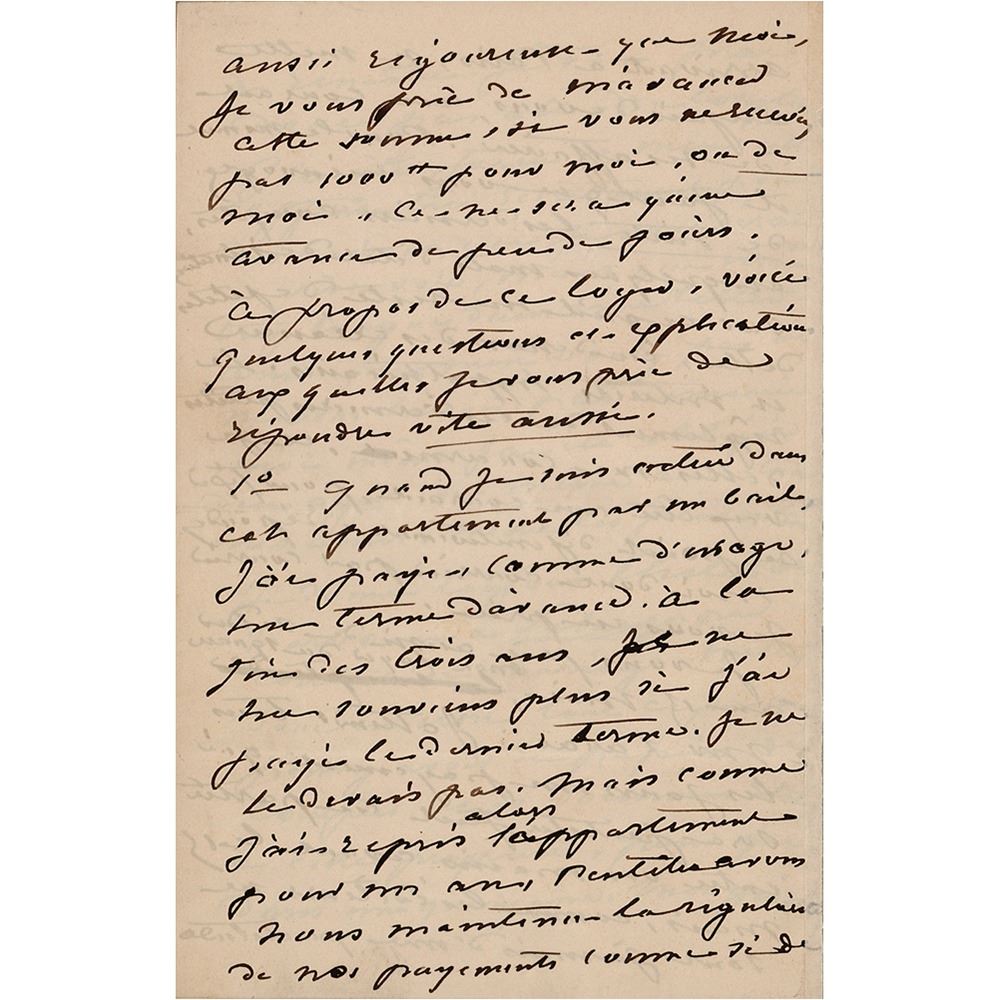 aussi rigoureuse que moi,
Je vous prie de m'avancer
cette somme, si vous ne recevez
pas 1000 ₶ pour moi, ou de
moi, ce ne sera qu'une
avance de peu de jours.
à propos de ce loyer, voici
quelques questions et explications
auxquelles je vous prie de
répondre vite aussi.
1º quand je suis entré dans
cet appartement par un bail,
J'ai payé, comme d'usage,
un terme d'avance. à la
fin des trois ans, je ne
me souviens plus si j'ai
payé le dernier terme. Je ne
le devais pas. Mais comme
alors
j'ai repris l'appartement
pour un an, Peut-être avons
nous maintenu la régularité
de nos payements comme si de